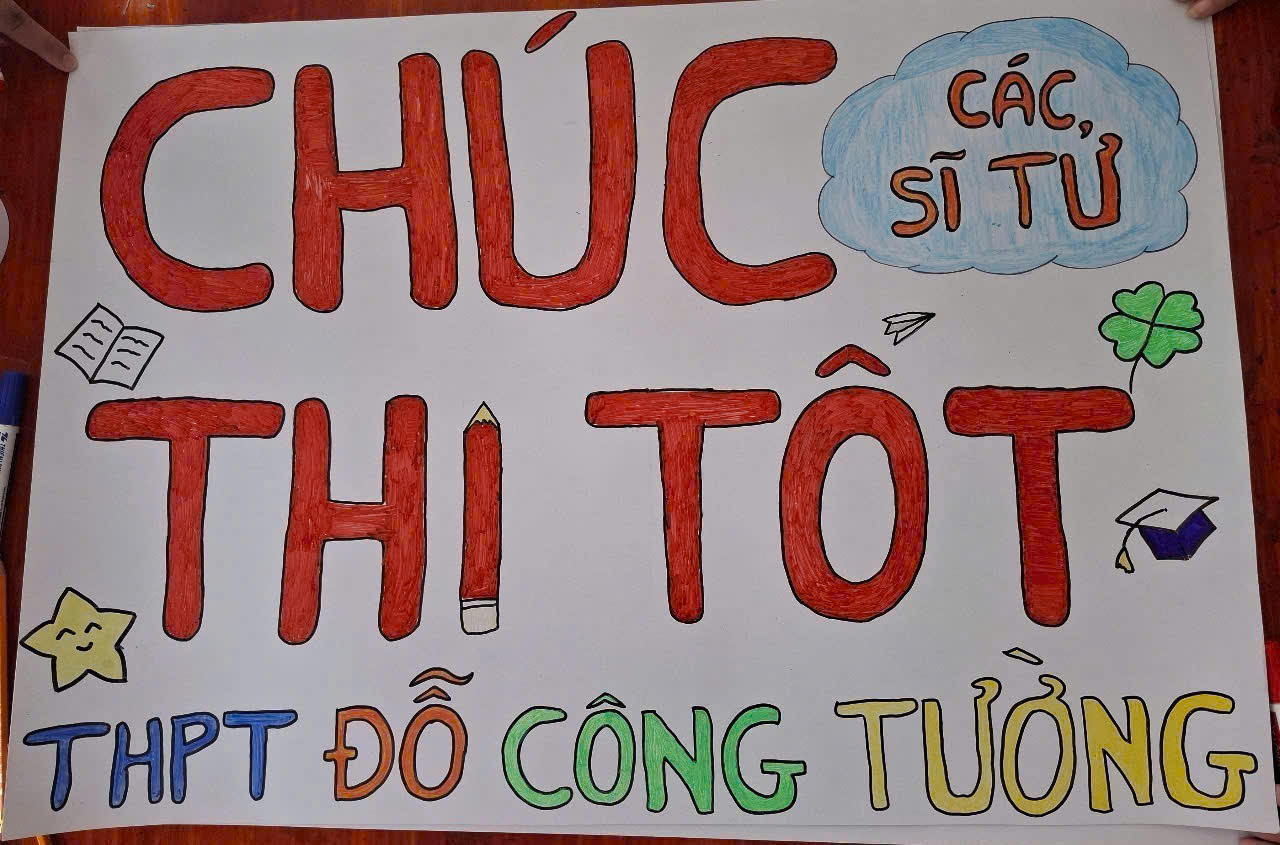 CHÚC
CÁC
SĨ TỬ
THI TỐT
THPT ĐỖ CÔNG TƯỜNG